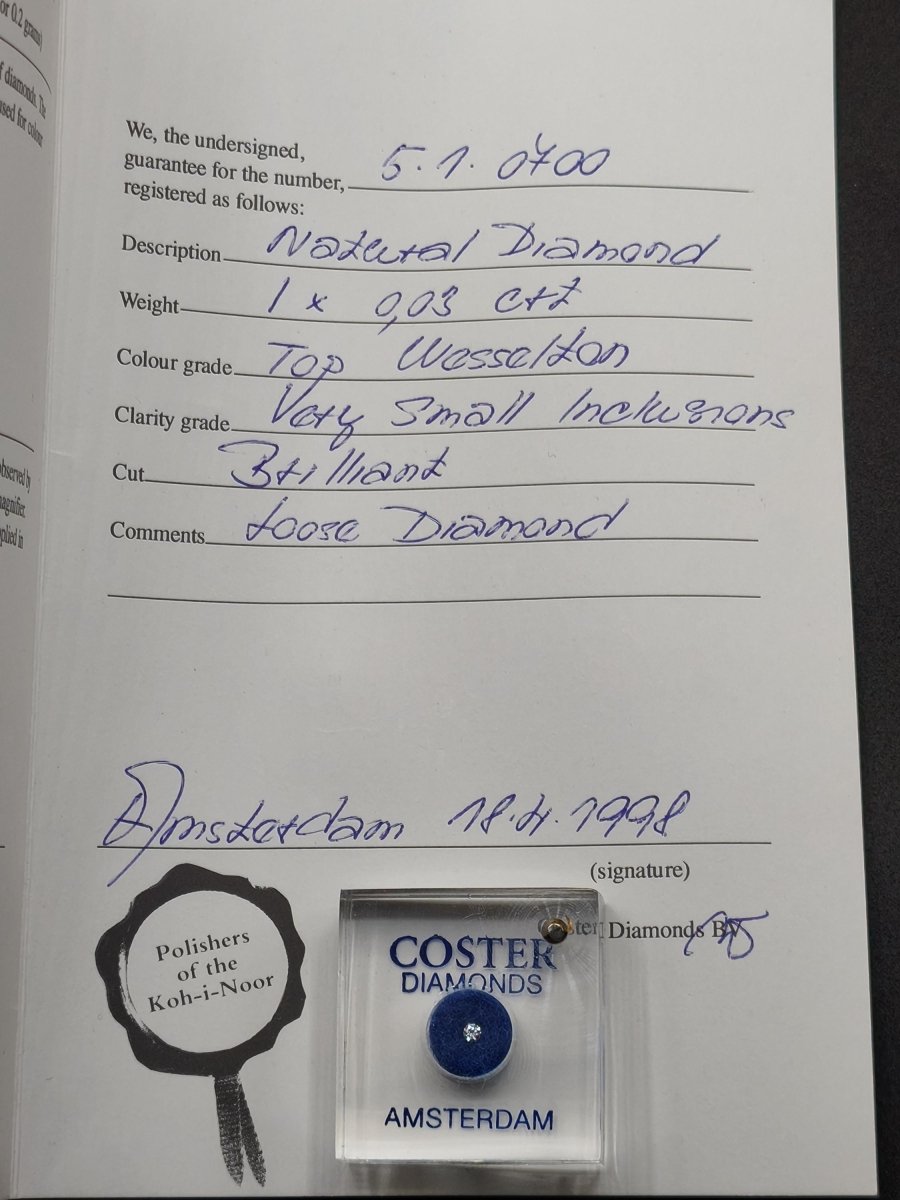 or 0.2 grams)
f diamonds. The
used for colour
observed by
magnifier.
plied in
We, the undersigned,
guarantee for the number, 5.1.0700
registered as follows:
Description Natural Diamond
Weight 1 x 0,03 crt
Colour grade Top Wesselton
Clarity grade Very Small Inclusions
Cut Brilliant
Comments Loose Diamond
Amsterdam 18.4.1998
(signature)
Coster Diamonds BV
Polishers
of the
Koh-i-Noor
COSTER
DIAMONDS
AMSTERDAM